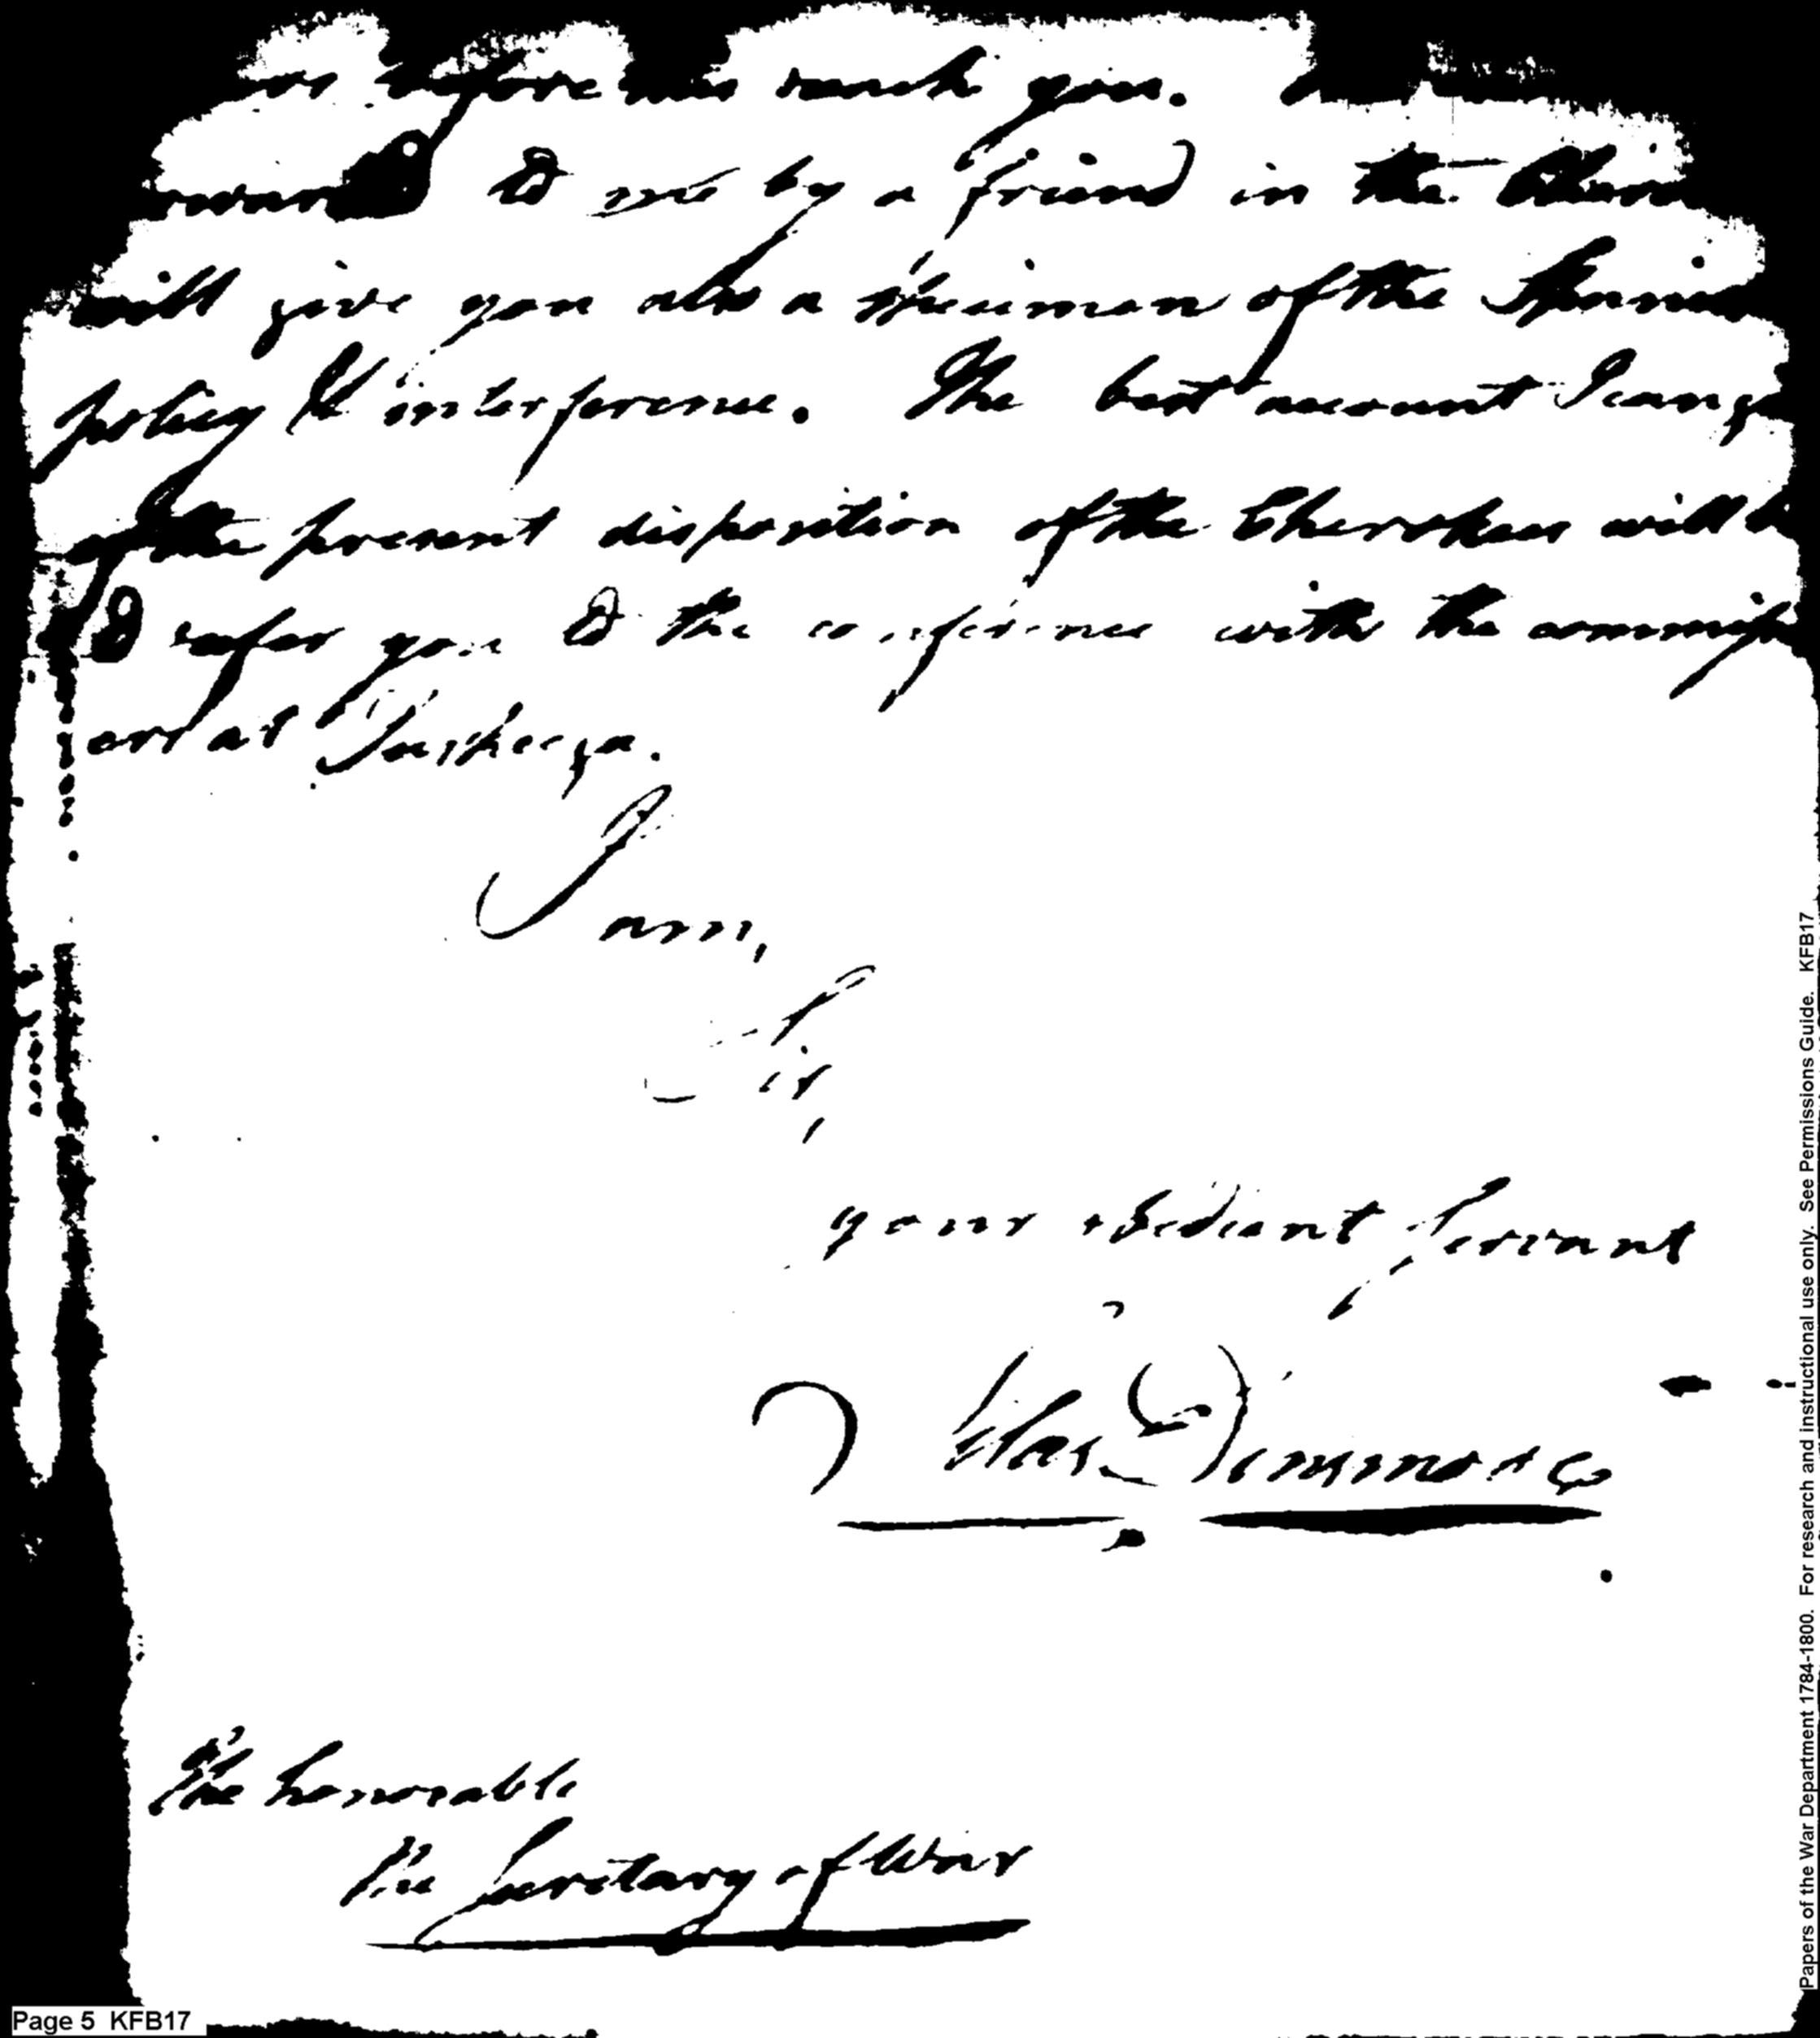 before this reach you.
to me by a friend in the
will give you also a specimen of the Spanis
policy & interference. The best account I can g
of the present disposition of the Cherokees will b
to refer you to the conferences with the commiss
ary at Tuskeega.
I am,
Sir,
your obedient Servant
The honorable
the Secretary of War
Page 5 KFB17
Papers of the War Department 1784-1800. For research and instructional use only. See Permissions Guide. KFB17